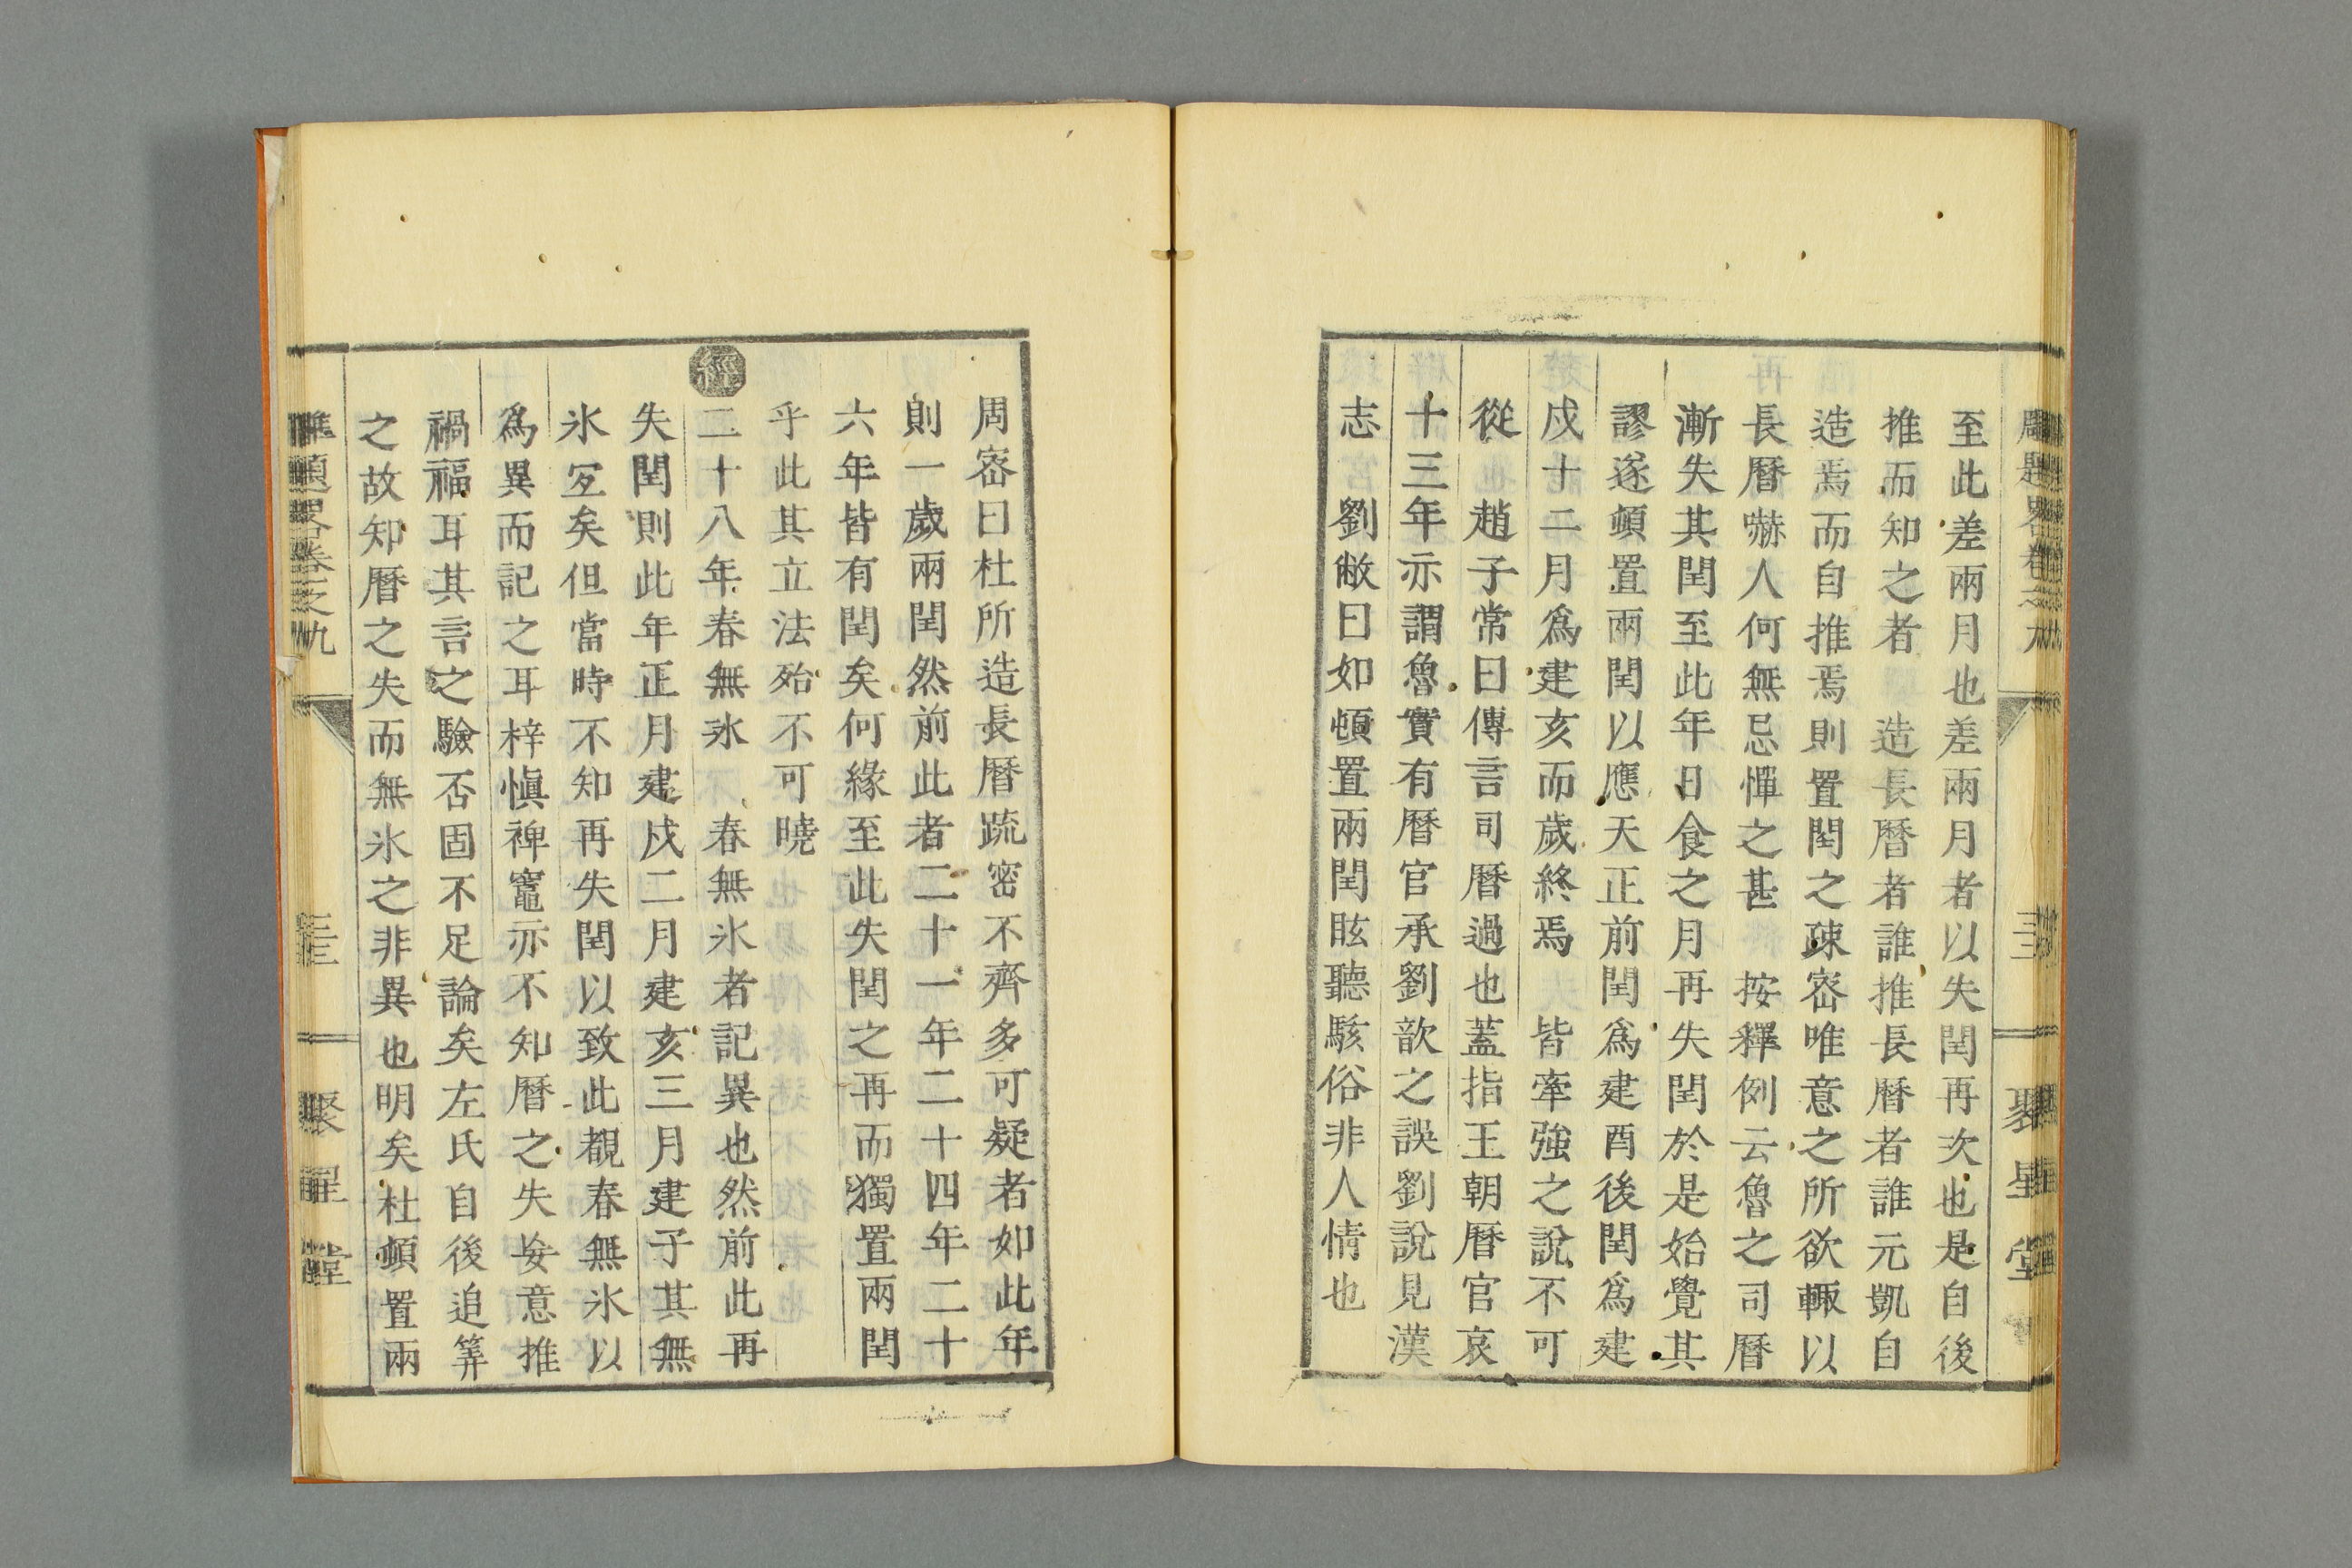 至此差兩月也差兩月者以失閏再次也是自後
推而知之者　造長曆者誰推長曆者誰元凱自
造焉而自推焉則置閏之疎宻唯意之所欲輙以
長曆嚇人何無忌憚之甚　按釋例云魯之司曆
漸失其閏至此年日食之月再失閏於是始覺其
謬遂頓置兩閏以應天正前閏爲建酉後閏爲建
戍十二月爲建亥而歲終焉　皆牽強之說不可
從　趙子常曰傳言司曆過也蓋指王朝曆官哀
十三年亦謂魯實有曆官承劉歆之誤劉說見漢
志　劉敞曰如頓置兩閏眩聽駭俗非人情也
周宻曰杜所造長曆䟽密不齊多可疑者如此年
則一歲兩閏然前此者二十一年二十四年二十
六年皆有閏矣何緣至此失閏之再而獨置兩閏
乎此其立法殆不可曉
經
二十八年春無氷　春無氷者記異也然前此再
失閏則此年正月建戍二月建亥三月建子其無
氷宐矣但當時不知再失閏以致此覩春無氷以
爲異而記之耳梓愼裨竈亦不知曆之失妄意推
禍福耳其言之驗否固不足論矣左氏自後追筭
之故知曆之失而無氷之非異也明矣杜頓置兩